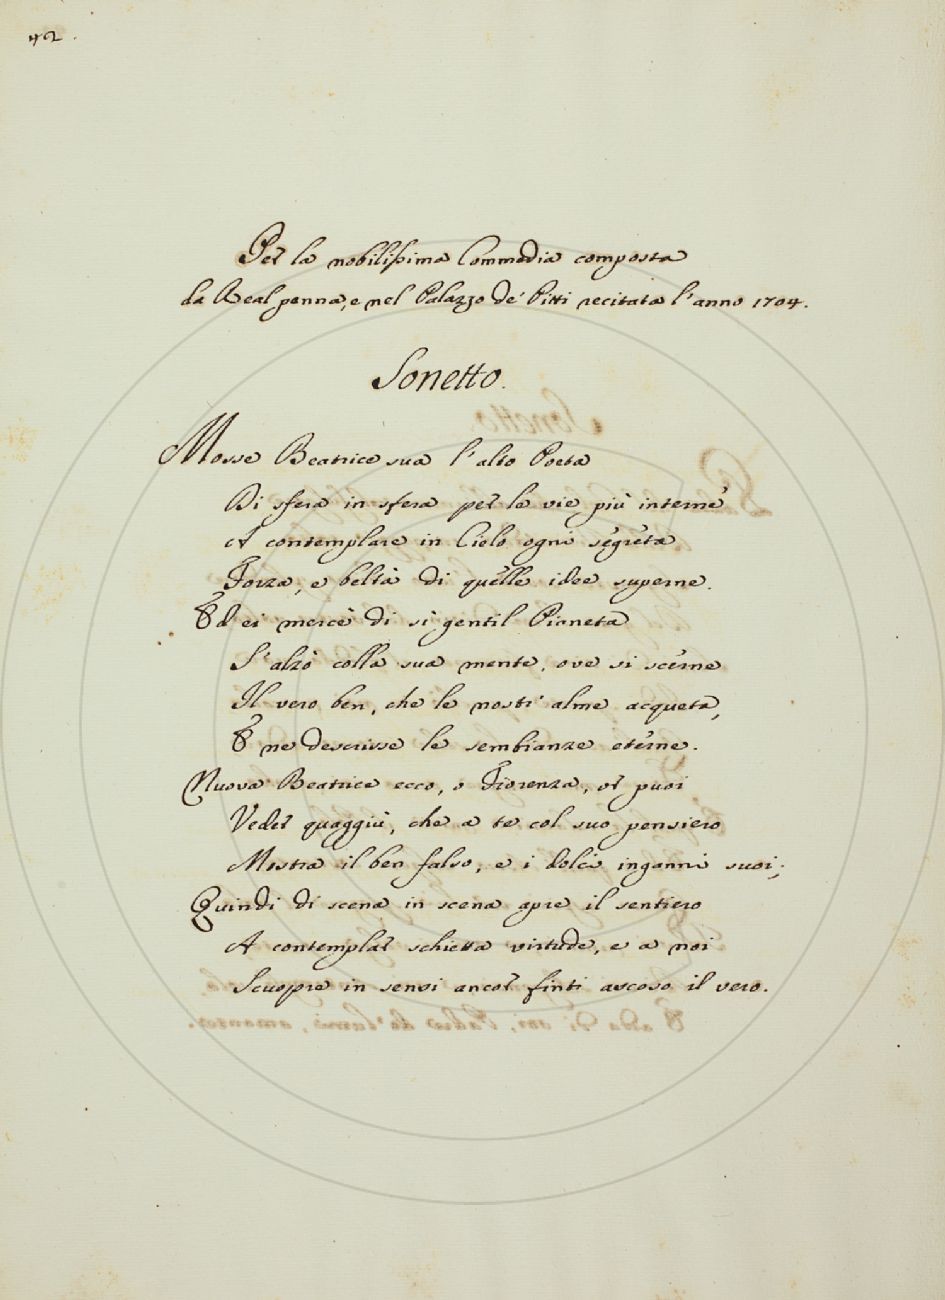 42.
Per la nobilissima Commedia composta
da Real penna, e nel Palazzo de' Pitti recitata l'anno 1704.
Sonetto.
Mosse Beatrice sua l'alto Poeta
Di sfera in sfera per le vie più interne
A contemplare in Cielo ogni segreta
Forza, e beltà di quelle idee superne.
Ed ei mercè di sì gentil Pianeta
S'alzò colla sua mente, ove si scerne
Il vero ben, che le nostr'alme acqueta,
E ne descrisse le sembianze eterne.
Nuova Beatrice ecco, o Fiorenza, or puoi
Veder quaggiù, che a te col suo pensiero
Mostra il ben falso, e i dolci inganni suoi;
Quindi di scena in scena apre il sentiero
A contemplar schietta virtude, e a noi
Scuopre in sensi ancor finti ascoso il vero.